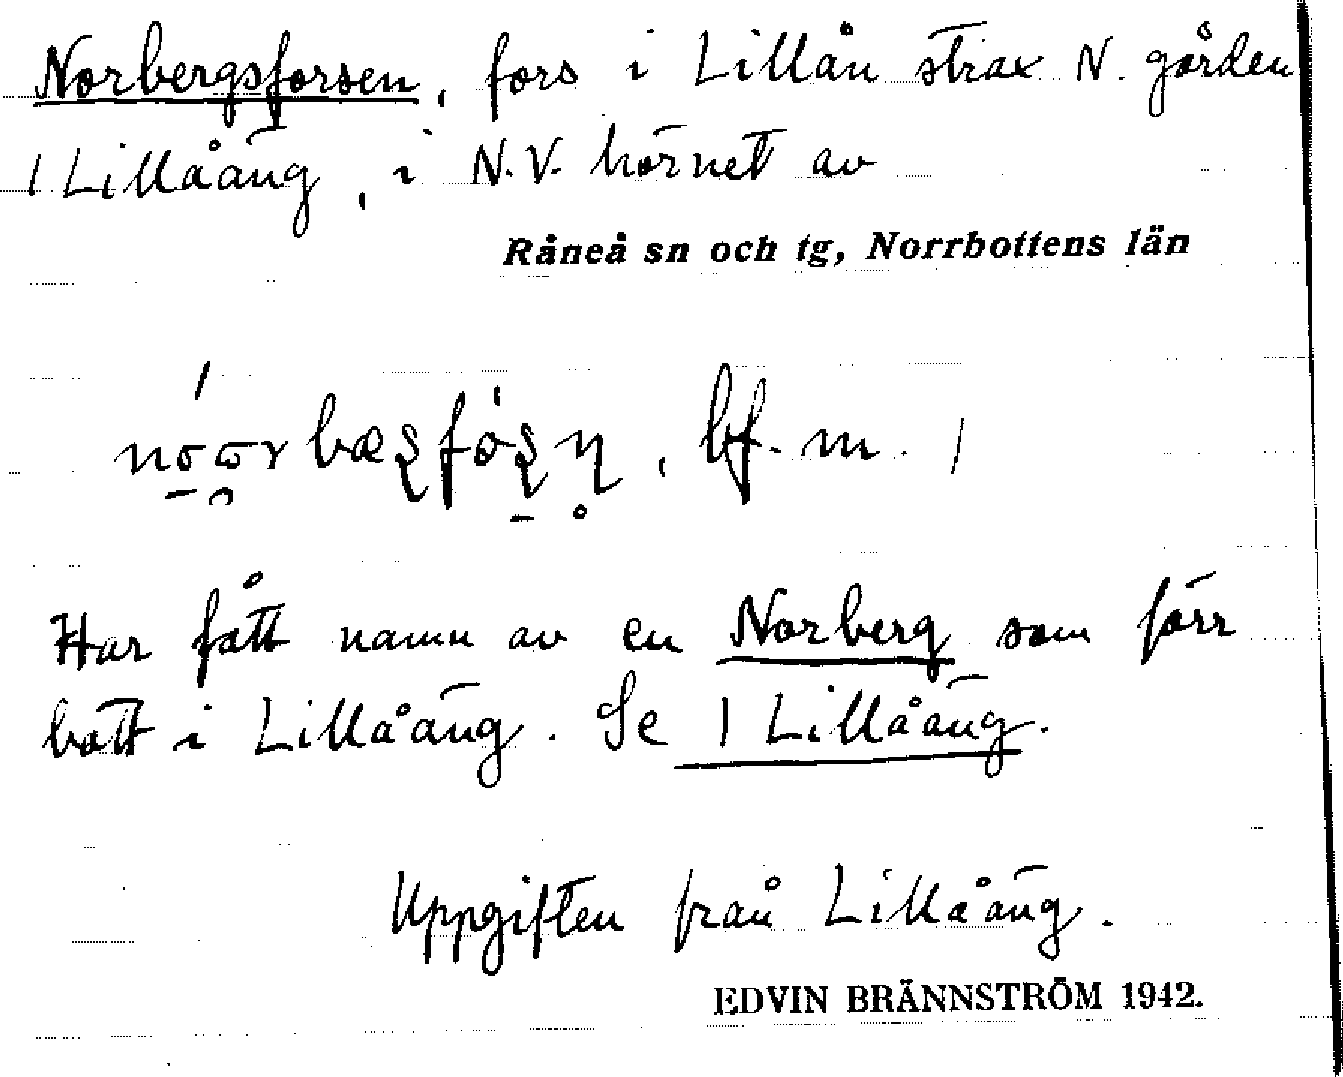 Norbergsforsen, fors i Lillån strax N. gården
1 Lillåäng, i N.V. hörnet av
Råneå sn och tg, Norrbottens län
bf. m.
Har fått namn av en Norberg som förr
bott i Lillåäng. Se 1 Lillåäng.
Uppgiften från Lillåäng.
EDVIN BRÄNNSTRÖM 1942.